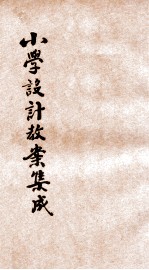 小學設計教案集成